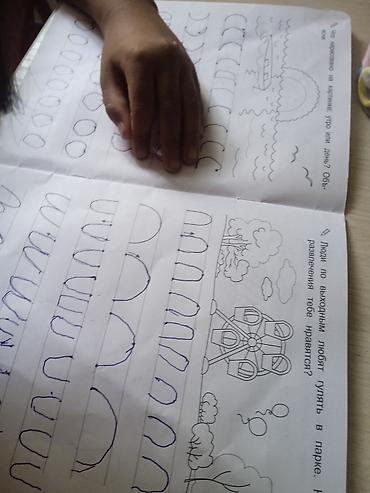 Что нарисовано на картине: утро или день? Объ-
Люди по выходным любят гулять в парке.
развлечения тебе нравятся?